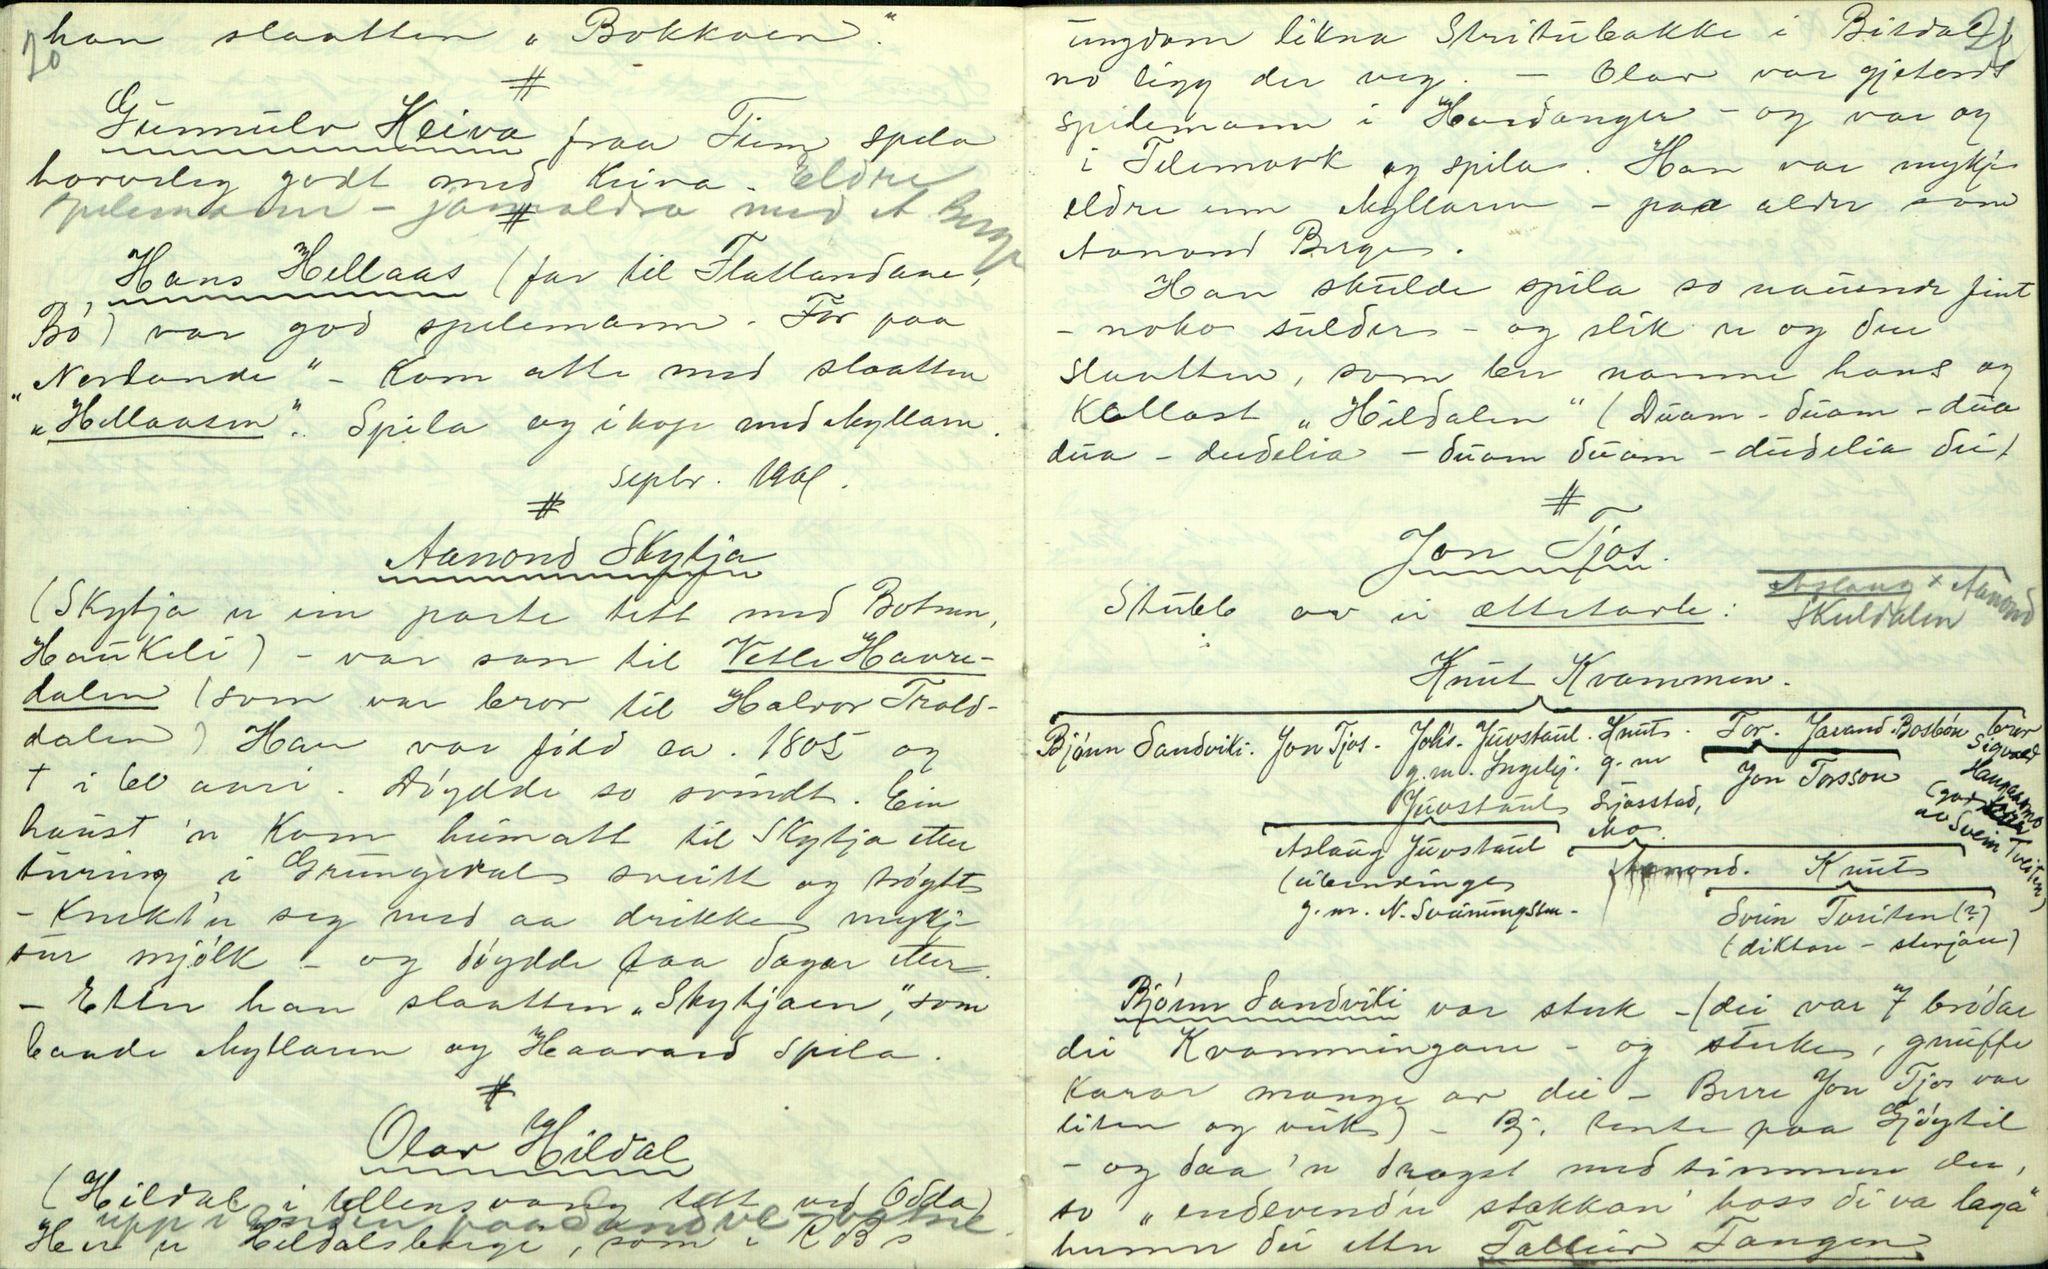 20
han slaatten „Bokkaen".
#
Gunnulv Keiva fraa Tinn spela
hoveleg godt med keiva. Eldre
spelemann – jamaldra med A Berge
#
Hans Hellaas (far til Flatlandane,
Bø) var god spelemann. For paa
„Nordande" – kom atte med slaatten
„Hellaasen". Spila og ihop med Myllaren.
Septr. 1901.
#
Aanond Skytja
(Skytja er ein part tett med Botnen,
Haukeli) – var son til Vetle Havre-
dalen (som var bror til Halvor Trold-
dalen) Han var fødd ca. 1805 og
† i 60 aari. Døydde so svindt. Ein
haust 'n kom heimatt til Skytja etter
turing i Grungedal sveitt og trøytt
– kvekt'n seg med aa drikke mykje
sur mjølk – og døydde faa dagar etter.
– Etter han slaatten „Skytjaen", som
baade Myllaren og Haavard spila.
#
Olav Hildal
(Hildal i Ullensvang tett ved Odda)
upp i enden paa Sandve-vatne
Her er Hildalsberge, som i
ungdom likna Stritubakke i Bitdal,
21
no ligg der veg. – Olav var gjetends
spelemann i Hardanger – og var og
i Telemork og spila. Han var mykje
eldre enn Myllaren – paa alder som
Aanond Berge.
Han skulde spila so nauende fint
– noko sulder – og slik er og den
slaatten, som ber namne hans og
kallast „Hildalen" (Duam – duam – dua
dua – dudelia – duam duam – dudelia dei)
#
Jon Tjos.
Stubb av ei ættetavle:
Aslaug × Aanond
Skuldalen
Knut Kvammen.
Bjønn Sandviki. Jon Tjos. Johs. Juvstaul. Knut. Tor. Jarand Bosbøn
bror Sigvald
Haugasmo
av Svein Tveiten)
g.m. Ingebj. Juvstaul
g.m Sjosstad, Mo.
Jon Torsson
Aslaug Juvstaul
g.m. N. Sveinungsson.
Aanond. Knut
Svein Tveiten (?)
(diktare – stevjar)
Bjønn Sandviki var sterk – (dei var 7 brødar
dei Kvammingane – og sterke, gnuffe
karar mange av dei – Berre Jon Tjos var
liten og veik) – Bj. tente paa Gjøytil
– og daa 'n drogst med timmer der,
so „endevend'n stokkan' hoss di va laga"
henne dei etter Talleiv Tangen